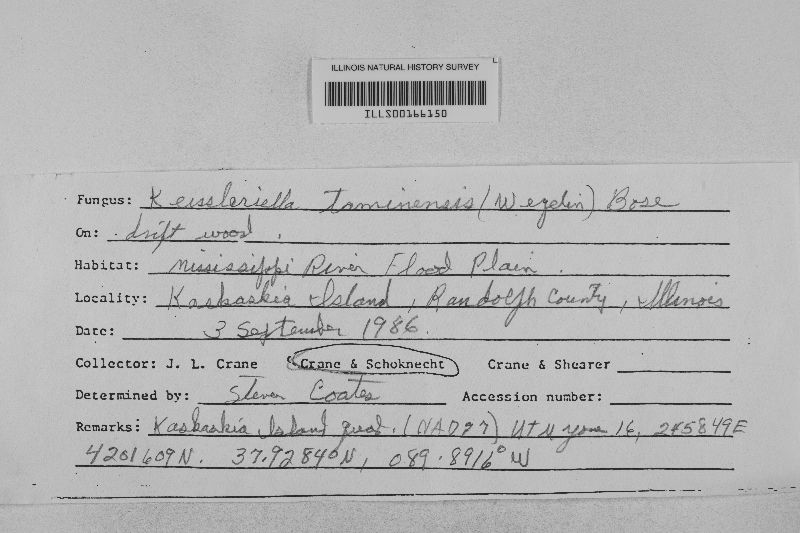 ILLINOIS NATURAL HISTORY SURVEY
ILLS00166150
Fungus: Keissleriella taminensis (Wegelin) Bose
On: drift wood.
Habitat: Mississippi River Flood Plain.
Locality: Kaskaskia Island, Randolph County, Illinois
Date: 3 September 1986.
Collector: J. L. Crane Crane & Schoknecht Crane & Shearer
Determined by: Steven Coates Accession number:
Remarks: Kaskaskia Island quad. (NAD27) UTM zone 16, 245849E
4201609N. 37.9284°N, 089.8916°W